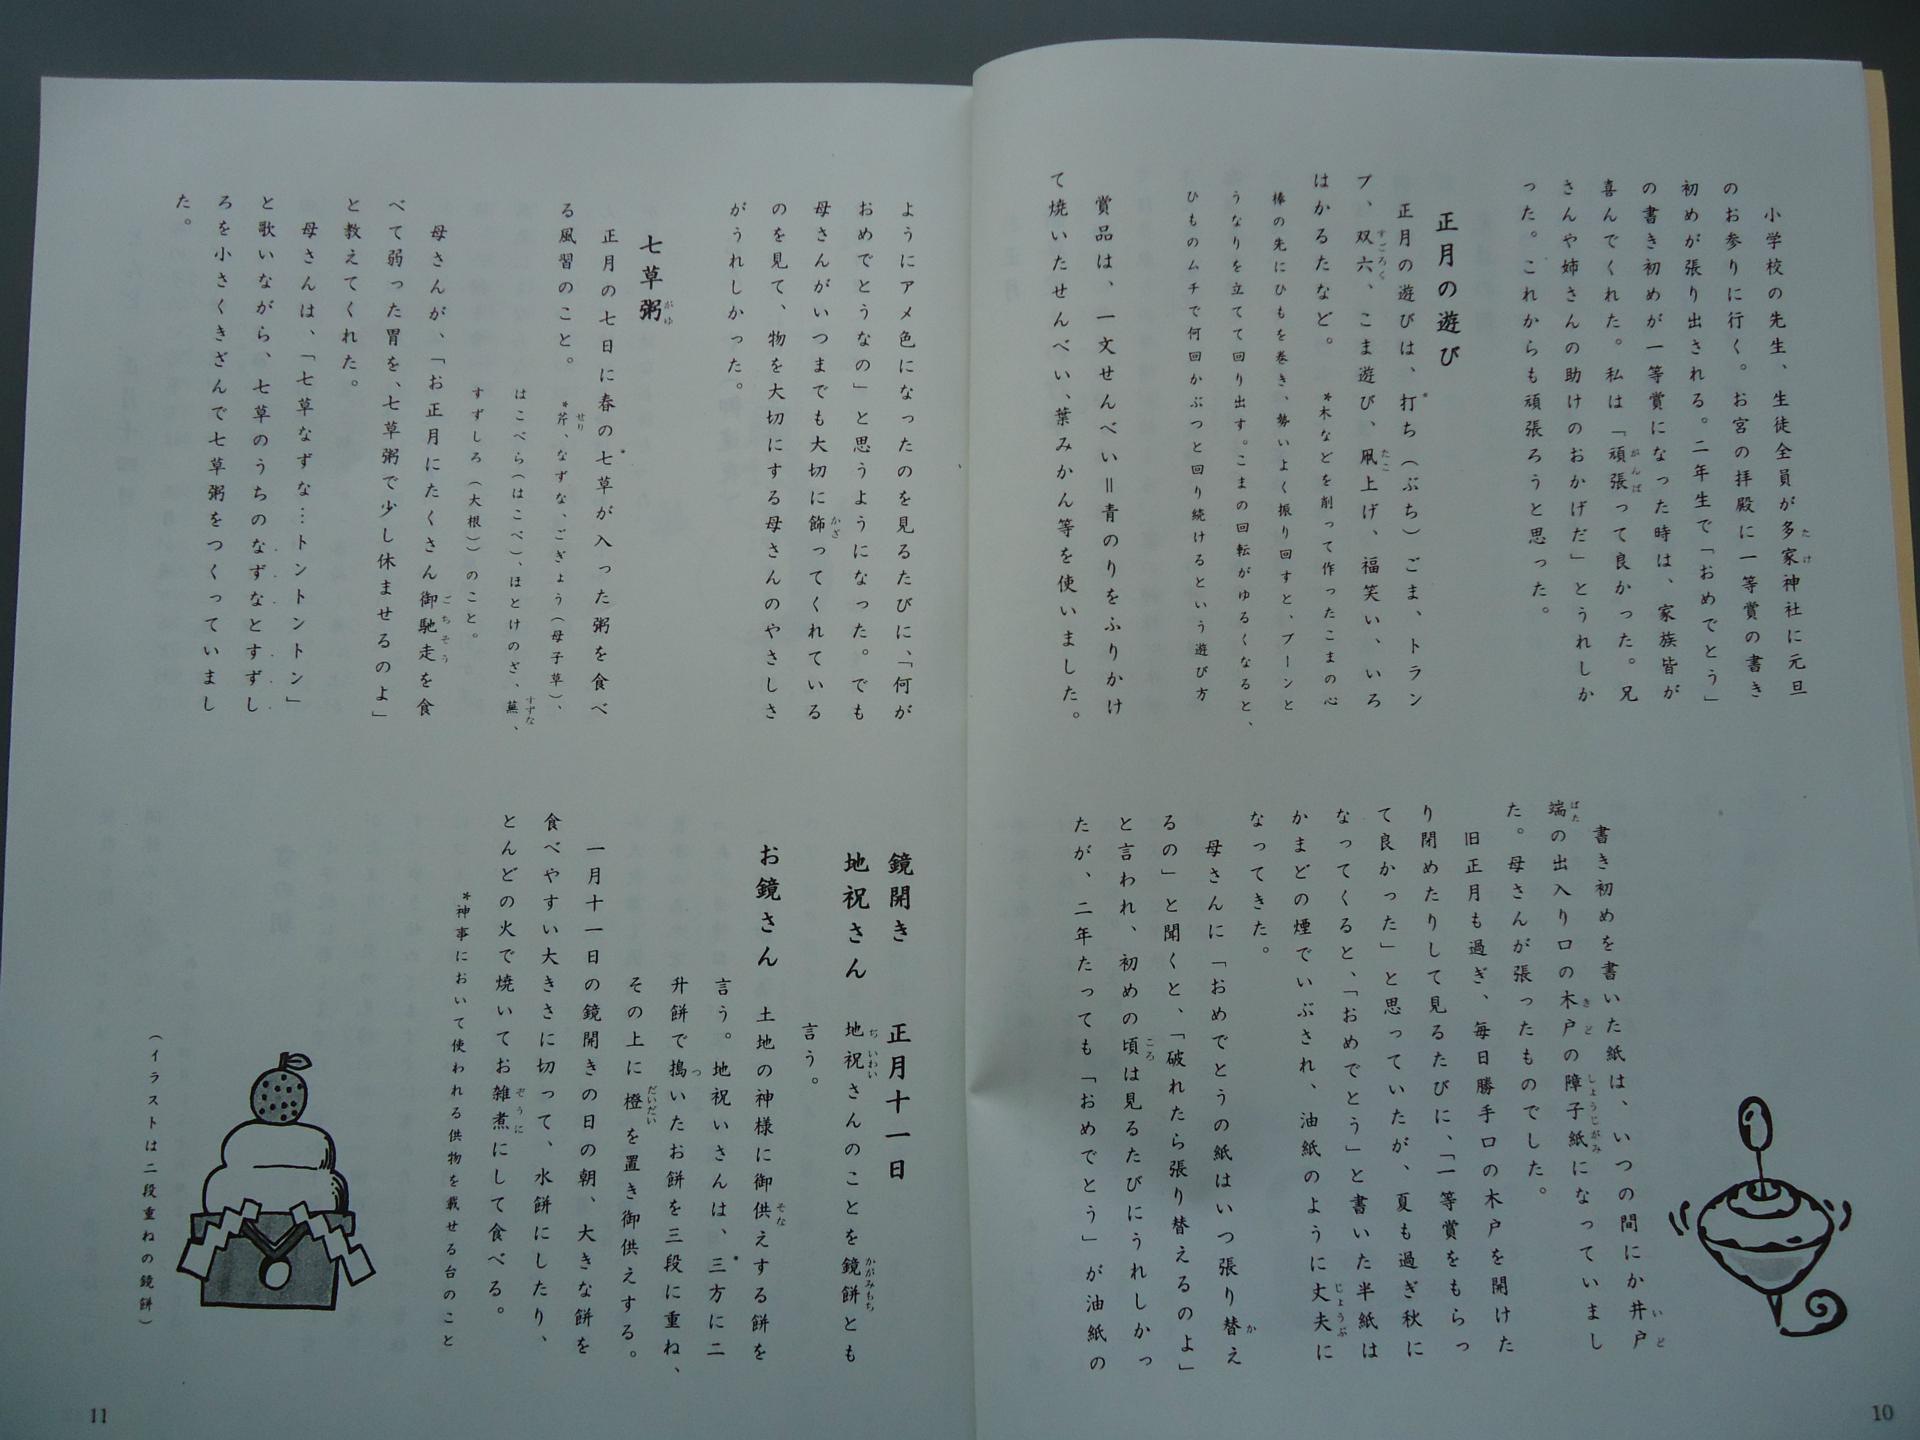 小学校の先生、生徒全員が多家神社に元旦
のお参りに行く。お宮の拝殿に一等賞の書き
初めが張り出される。二年生で「おめでとう」
の書き初めが一等賞になった時は、家族皆が
喜んでくれた。私は「頑張って良かった。兄
さんや姉さんの助けのおかげだ」とうれしか
った。これからも頑張ろうと思った。
正月の遊び
正月の遊びは、打ち（ぶち）ごま、トラン
プ、双六、こま遊び、凧上げ、福笑い、いろ
はかるたなど。
*木などを削って作ったこまの心
棒の先にひもを巻き、勢いよく振り回すと、ブーンと
うなりを立てて回り出す。こまの回転がゆるくなると、
ひものムチで何回かぶつと回り続けるという遊び方
賞品は、一文せんべい＝青のりをふりかけ
て焼いたせんべい、葉みかん等を使いました。
書き初めを書いた紙は、いつの間にか井戸
端の出入り口の木戸の障子紙になっていまし
た。母さんが張ったものでした。
旧正月も過ぎ、毎日勝手口の木戸を開けた
り閉めたりして見るたびに、「一等賞をもらっ
て良かった」と思っていたが、夏も過ぎ秋に
なってくると、「おめでとう」と書いた半紙は
かまどの煙でいぶされ、油紙のように丈夫に
なってきた。
母さんに「おめでとうの紙はいつ張り替え
るの」と聞くと、「破れたら張り替えるのよ」
と言われ、初めの頃は見るたびにうれしかっ
たが、二年たっても「おめでとう」が油紙の
10
ようにアメ色になったのを見るたびに、「何が
おめでとうなの」と思うようになった。でも
母さんがいつまでも大切に飾ってくれている
のを見て、物を大切にする母さんのやさしさ
がうれしかった。
七草粥
正月の七日に春の七草が入った粥を食べ
る風習のこと。
*芹、なずな、ごぎょう（母子草）、
はこべら（はこべ）、ほとけのざ、蕪、
すずしろ（大根））のこと。
母さんが、「お正月にたくさん御馳走を食
べて弱った胃を、七草粥で少し休ませるのよ」
と教えてくれた。
母さんは、「七草なずな…トントントン」
と歌いながら、七草のうちのなずなとすずし
ろを小さくきざんで七草粥をつくっていまし
た。
鏡開き　正月十一日
地祝さん　地祝さんのことを鏡餅とも
言う。
お鏡さん　土地の神様に御供えする餅を
言う。地祝いさんは、三方に二
升餅で搗いたお餅を三段に重ね、
その上に橙を置き御供えする。
一月十一日の鏡開きの日の朝、大きな餅を
食べやすい大きさに切って、水餅にしたり、
とんどの火で焼いてお雑煮にして食べる。
*神事において使われる供物を載せる台のこと
（イラストは二段重ねの鏡餅）
11